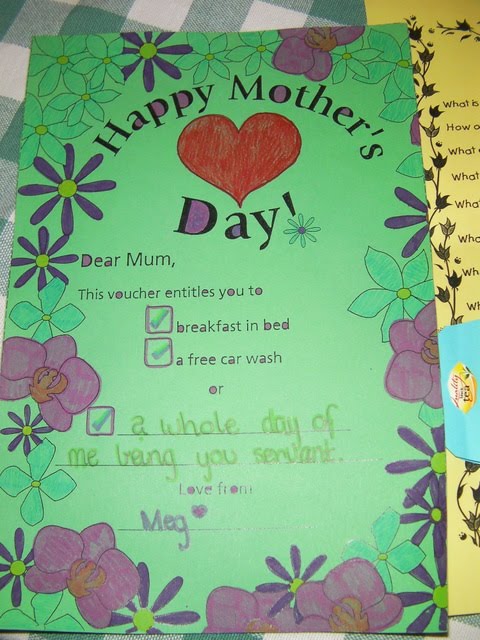 Happy Mother's
Day!
Dear Mum,
This voucher entitles you to
breakfast in bed
a free car wash
or
a whole day of
me being you servant.
Love from
Meg
What is
How o
What
What
What
What
Wha
What
quality
tea